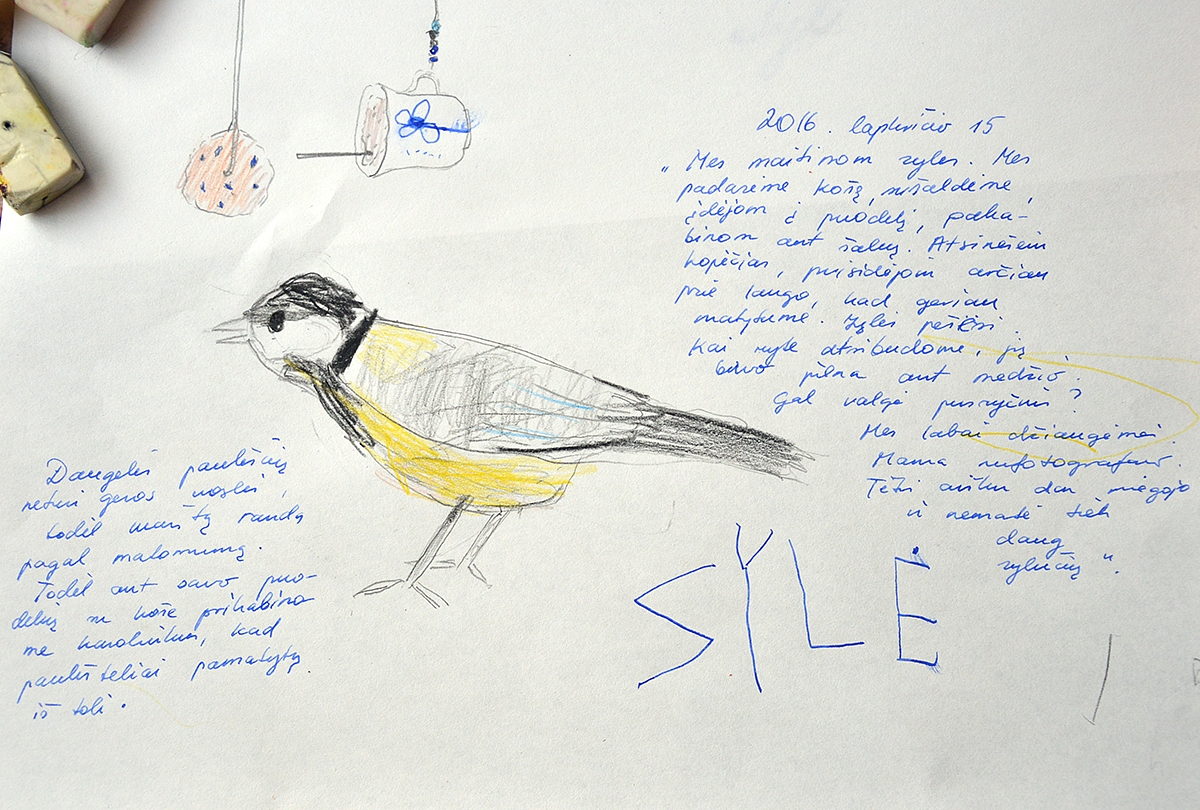 2016. lapkričio 15
„Mes maitinom zyles. Mes
padarėme košę, sušaldėme,
įdėjom į puodelį, paka-
binom ant šakų. Atsinešėm
kopėčias, prisidėjom arčiau
prie lango, kad geriau
matytume. Zylės
Kai ryte atsibudome, jų
buvo pilna ant medžio.
Gal valgė pusryčius?
Mes labai džiaugėmės
Mama nufotografavo.
Tėtis aišku dar miegojo
ir nematė tiek
daug
zylučių“.
Daugelis paukščių
neturi geros uoslės,
todėl maistą randa
pagal matomumą.
Todėl ant savo puo-
delių su koše prikabino
me karoliukus, kad
paukšteliai pamatytų
iš toli.
SYLĖ